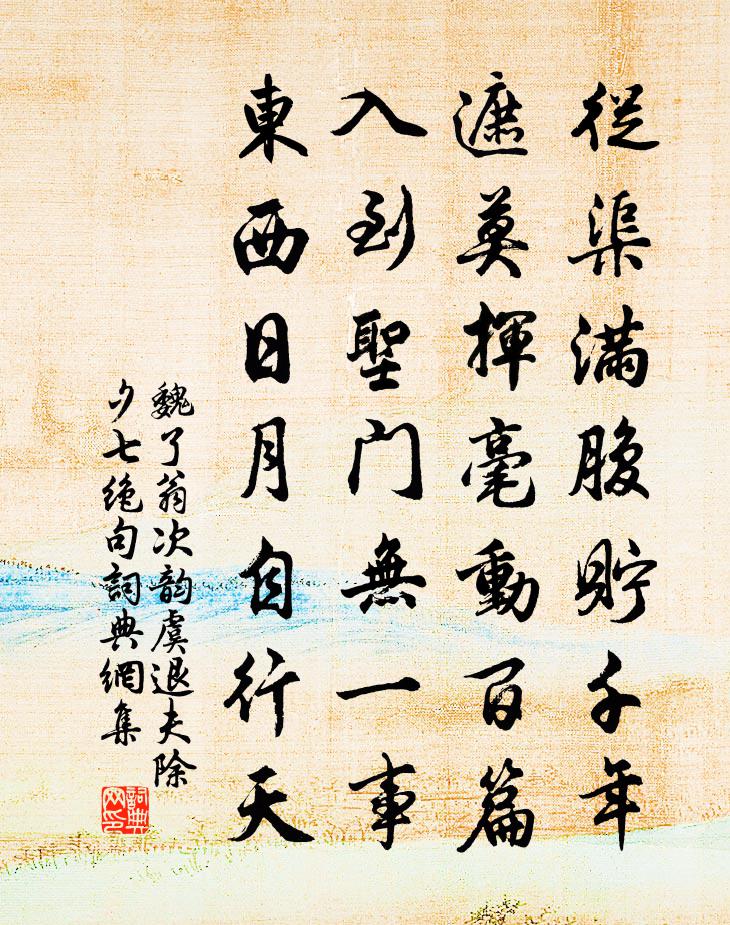 從渠滿腹貯千年
遮莫揮毫動百篇
入到聖門無一事
東西日月自行天
魏了翁次韵虞退夫除
夕七絶句詞典網集
詞典
网印